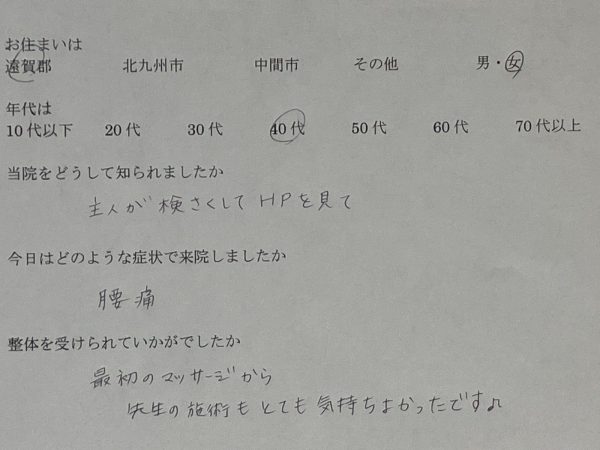 お住まいは
遠賀郡 北九州市 中間市 その他 男・女
年代は
10代以下 20代 30代 40代 50代 60代 70代以上
当院をどうして知られましたか
主人が検さくしてHPを見て
今日はどのような症状で来院しましたか
腰痛
整体を受けられていかがでしたか
最初のマッサージから
先生の施術もとても気持ちよかったです♪